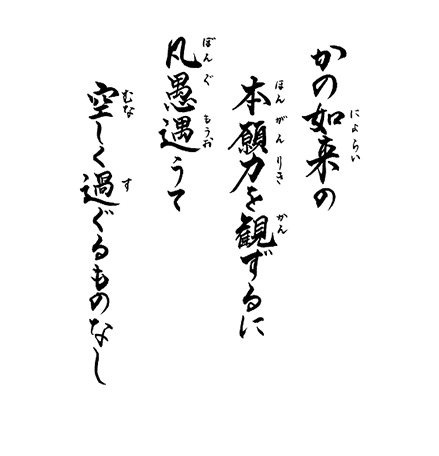 かの如来の
にょらい
本願力を観ずるに
ほんがんりき かん
凡愚遇うて
ぼんぐ もうお
空しく過ぐるものなし
むな す